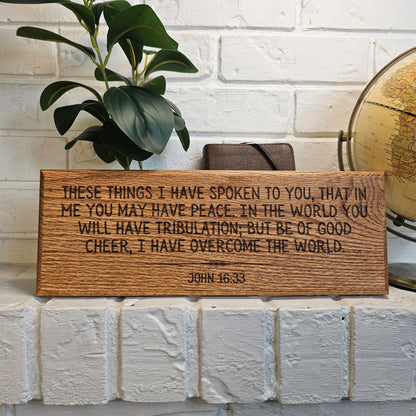 THESE THINGS I HAVE SPOKEN TO YOU, THAT IN
ME YOU MAY HAVE PEACE. IN THE WORLD YOU
WILL HAVE TRIBULATION; BUT BE OF GOOD
CHEER, I HAVE OVERCOME THE WORLD.
JOHN 16:33